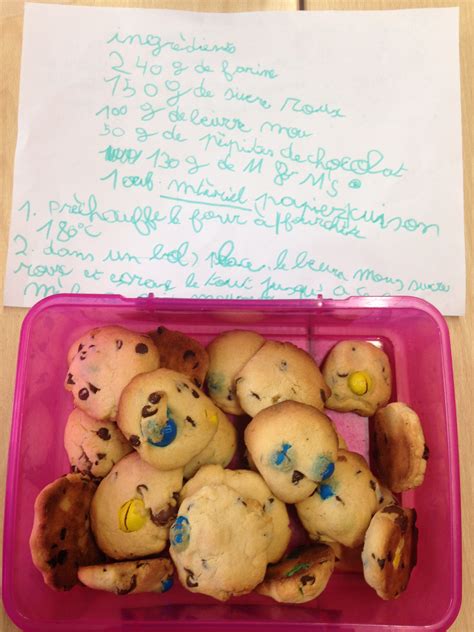 ingrèdients
240 g de farine
150 g de sucre roux
100 g de beurre mou
50 g de pèpites de chocolat
130 g de M & M's
1 oeuf matèriel papier cuisson
1. Prèchauffe le four à
180°C
2. dans un bol, place le beurre mou sucre
roux et ècrase le tout jusqu'à